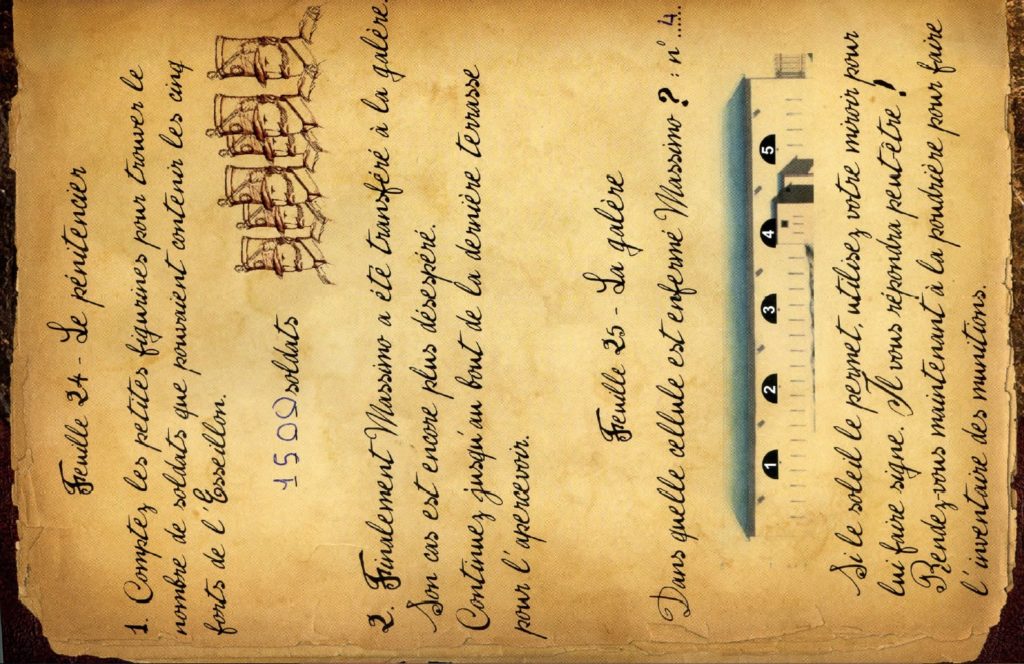 Feuille 24 - Le pénitencier
1. Comptez les petites figurines pour trouver le
nombre de soldats que pouvaient contenir les cinq
forts de l'Esseillon.
1500 soldats
2. Finalement Massimo a été transféré à la galère.
Son cas est encore plus désespéré.
Continuez jusqu'au bout de la dernière terrasse
pour l'apercevoir.
Feuille 25 - La galère
Dans quelle cellule est enfermé Massimo ? : n° ..4....
1 2 3 4 5
Si le soleil le permet, utilisez votre miroir pour
lui faire signe. Il vous répondra peut-être !
Rendez-vous maintenant à la poudrière pour faire
l'inventaire des munitions.